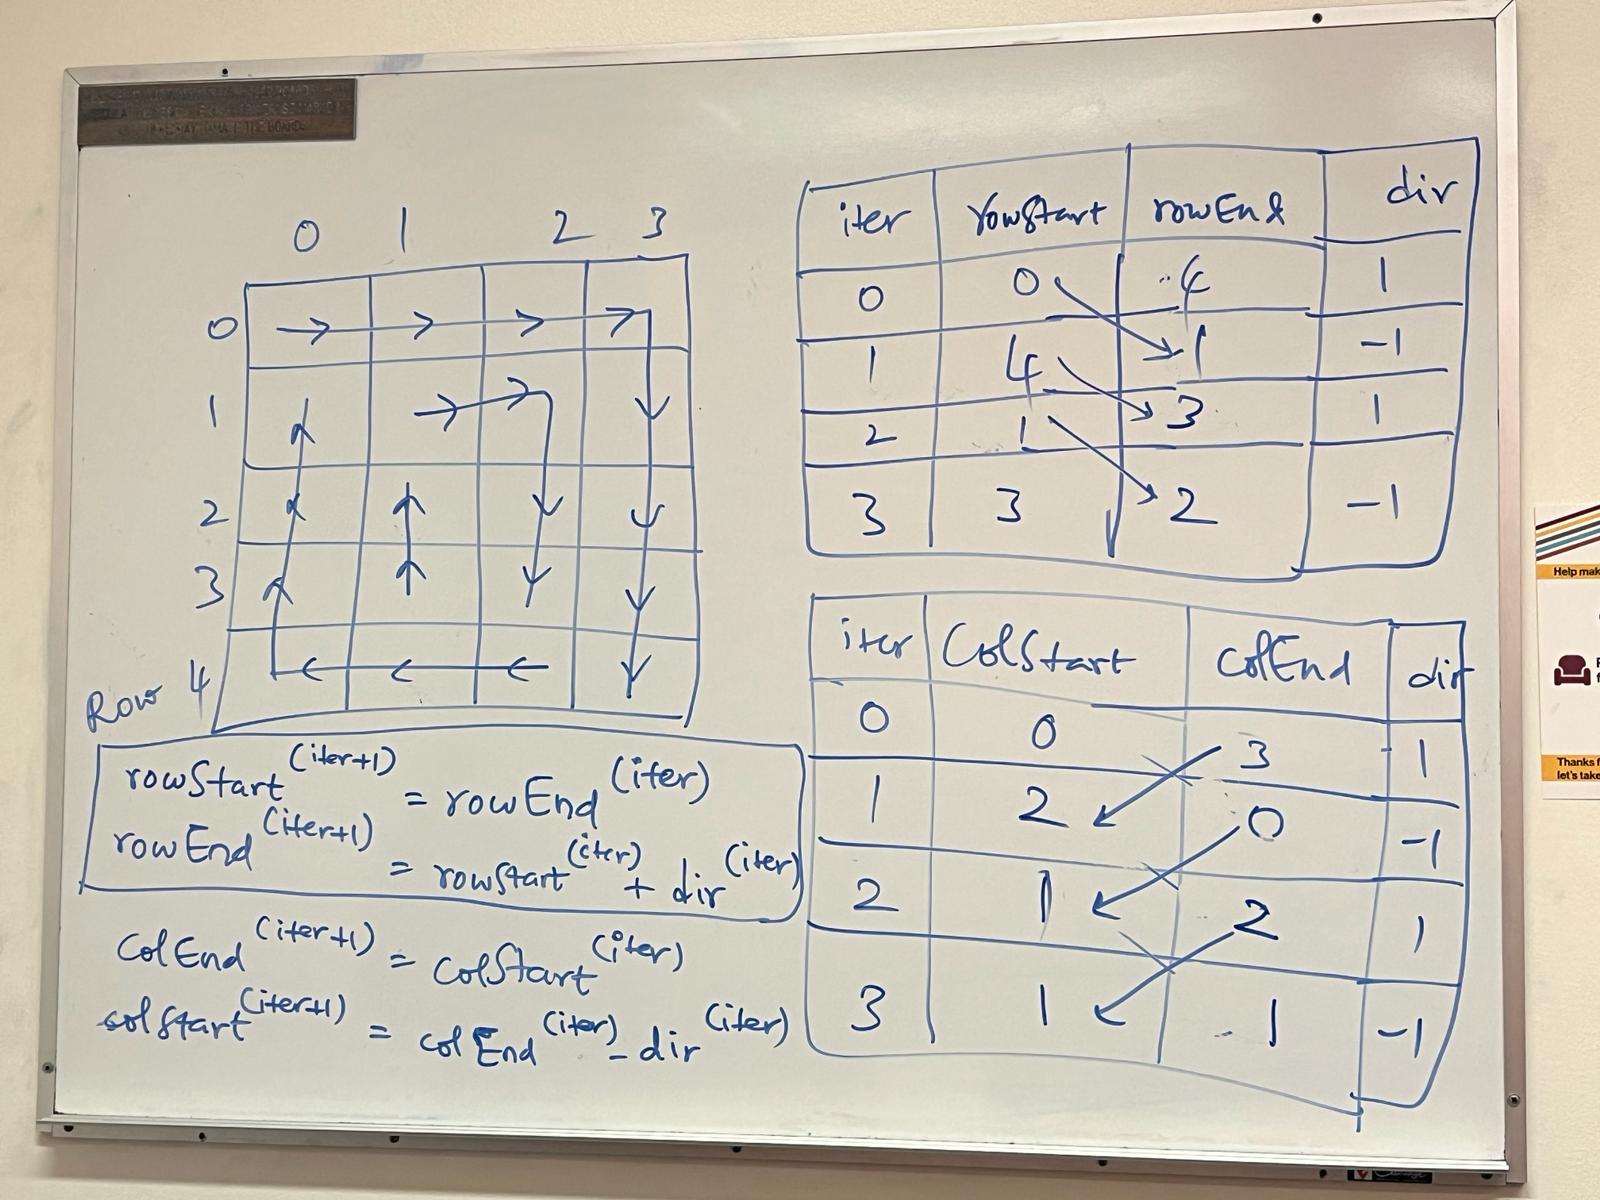 0 1 2 3
0
1
2
3
Row 4
rowStart^(iter+1) = rowEnd^(iter)
rowEnd^(iter+1) = rowStart^(iter) + dir^(iter)
ColEnd^(iter+1) = ColStart^(iter)
colStart^(iter+1) = colEnd^(iter) - dir^(iter)
iter rowStart rowEnd dir
0 0 4 1
1 4 1 -1
2 1 3 1
3 3 2 -1
iter ColStart ColEnd dir
0 0 3 1
1 2 0 -1
2 1 2 1
3 1 1 -1
Help mak
Thanks f
let's take